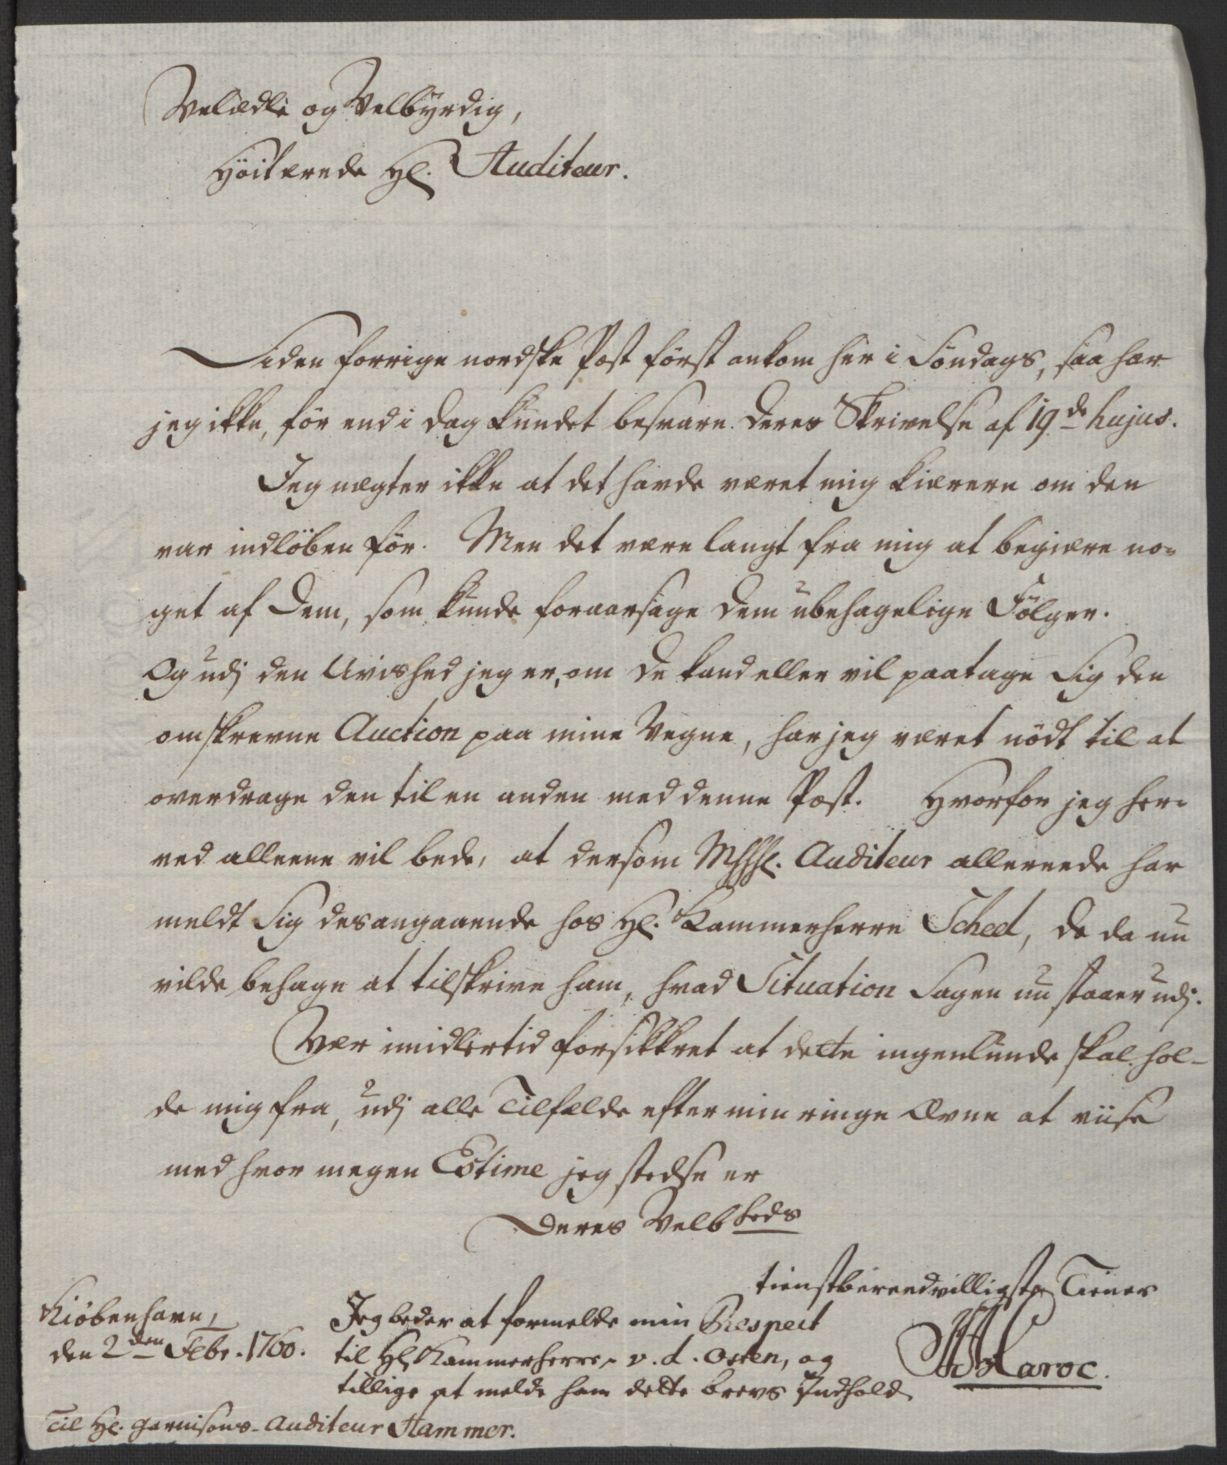 Velædle og Velbÿrdig,
Höitærede Hl. Auditeur.
Siden forrige nordske Post först ankom her i Söndags, saa har
jeg ikke, för end i dag kundet besvare Deres Skrivelse af 19de hujus.
Jeg nægter ikke at det havde været mig kiærere om den
var indlöben för. Men det være langt fra mig at begiære no=
get af Dem, som kunde foraarsage Dem ubehagelige Fölger.
Og udj den Uvished jeg er, om De kand eller vil paatage Sig den
omskrevne Auction paa mine Vegne, har jeg været nödt til at
overdrage den til en anden med denne Post. Hvorfor jeg her=
ved alleene vil bede, at dersom Auditeur allereede har
meldt Sig desangaaende hos Hl. Kammerherre Scheel, De da nu
vilde behage at tilskrive ham, hvad Situation Sagen nu staaer udj.
Vær imidlertid forsikkret at dette ingenlunde skal hol=
de mig fra, udj alle Tilfælde efter min ringe Ævne at viise
med hvor megen Estime jeg stedse er
Deres Velbheds
tienstbereedvilligste Tiener
Kiöbenhavn,
den 2den Febr. 1760.
Jeg beder at formelde min Respect
til Hl Kammerherre v. d. Osten, og
tillige at melde ham dette brevs Indhold.
Haroc.
Til Hl. Garnisons-Auditeur Hammer.